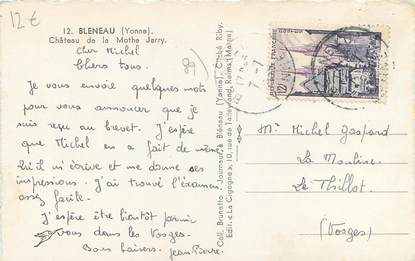 12€
12. BLENEAU (Yonne).
Château de la Mothe Jerry.
Cher Michel
Chers tous.
Je vous envoie quelques mots
pour vous annoncer que je
suis reçu au brevet. J'espère
que Michel en a fait de même
Qu'il m'écrive et me donne ses
impressions. J'ai trouvé l'examen
assez facile.
J'espère être bientôt parmi
vous dans les Vosges.
Bons baisers. Jean Pierre.
Coll. Brunetto - Journaux à Bléneau (Yonne) - Cliché Riby.
Edit. « La Cigogne », 10, rue de Talleyrand, Reims (Marne)
7-7
12F
Mr Michel Gaspard
La Mouline
Le Thillot
(Vosges)